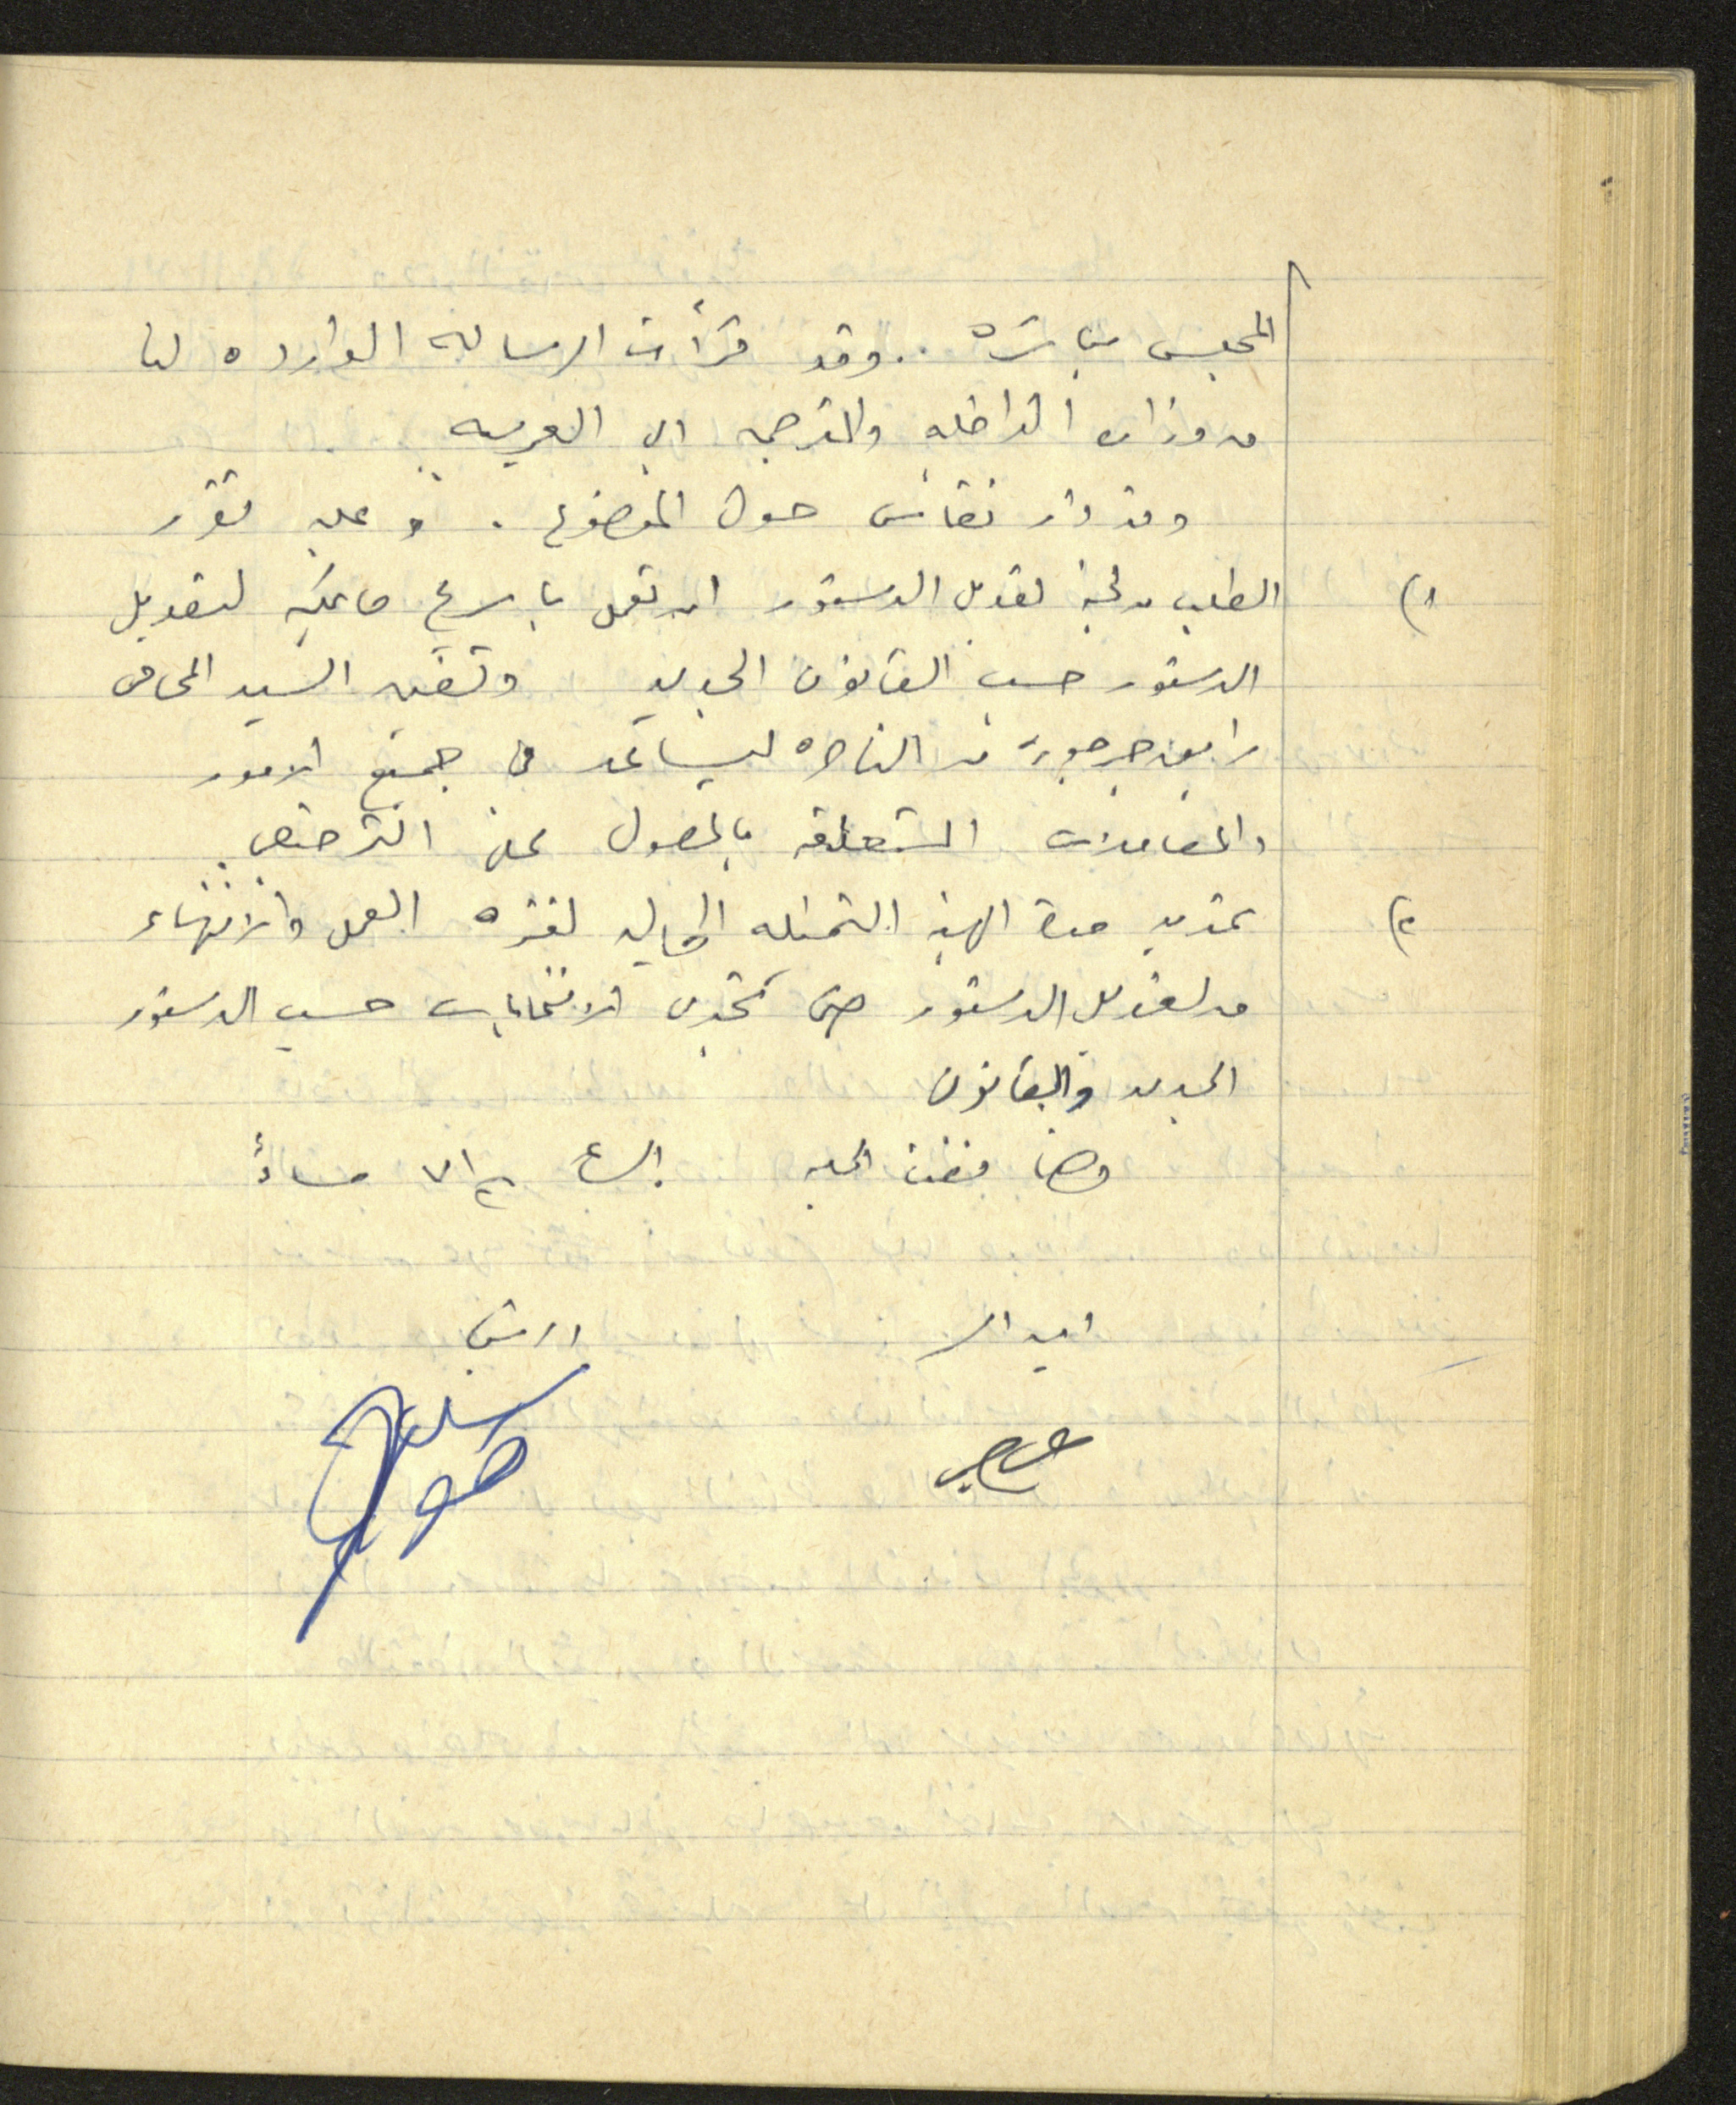 المجلس مباشره .. وقد قرأت الرساله الوارده لنا
من وزارة الداخليه والمترجمه الى العربيه
وقد دار نقاش حول الموضوع . وعليه تقرر
١) الطلب من لجنة تعديل الدستور ان تعمل باسرع ما يمكن لتعديل
الدستور حسب القانون الجديد وتعين السيد المحامي
جرجوره من الناصره ليساعد في جميع الامور
والمعاملات المتعلقه بالحصول على الترخيص
٢) تمديد مدة الهيئه التمثيليه الحاليه لفترة العمل والانتهاء
من تعديل الدستور حتى تجري الانتخابات حسب الدستور
الجديد والقانون
وهنا فضت الجلسه الساعه مساءً
امين السر الرئيس